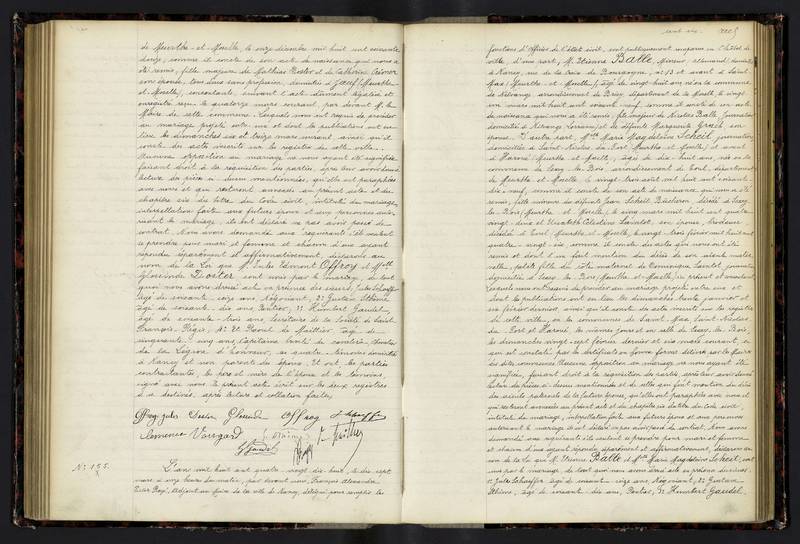 de Meurthe-et-Moselle, le onze décembre mil huit cent soixante
onze, comme il conste de son acte de naissance qui nous a
été remis, fille majeure de Mathias Dexter et de Catherine
son épouse, tous deux sans profession, domiciliés à Joeuf (Meurthe
et-Moselle), consentants, suivant l'acte dûment légalisé et
enregistré reçu le quatorze mars courant, par devant M. le
Maire de cette commune. Lesquels nous ont requis de procéder
au mariage projeté entre eux et dont les publications ont eu
lieu les dimanches six et treize mars courant, ainsi qu'il
conste des actes inscrits sur les registres de cette ville.
Aucune opposition au mariage ne nous ayant été signifiée
faisant droit à la réquisition des parties, après leur avoir donné
lecture des pièces ci-dessus mentionnées, qu'elles ont paraphées
avec nous et qui resteront annexées au présent acte et du
chapitre six du titre du Code civil, intitulé du mariage,
interpellation faite aux futurs époux et aux personnes auto
risant le mariage, ils ont déclaré ne pas avoir passé de
contrat. Nous avons demandé aux requérants s'ils veulent
se prendre pour mari et femme et chacun d'eux ayant
répondu séparément et affirmativement, déclarons au
nom de la Loi que M. Jules Edmont Offroy et Melle
Dexter sont unis par le mariage, de tout
quoi nous avons dressé acte en présence des sieurs Jules Schaeffer
âgé de soixante-onze ans, Négociant, 2° Gustave Athime
âgé de soixante-dix ans, Rentier, 3° Humbert Gaudel,
âgé de soixante-trois ans, Secrétaire de la Société de Saint
François-Régis, 4° Et Raoul de Maillier âgé de
cinquante-cinq ans, Capitaine breveté de cavalerie, chevalier
de la Légion d'honneur, les quatre témoins domiciliés
à Nancy et non parents des époux. Et ont les parties
contractantes, les père et mère de l'époux et les témoins,
signé avec nous le présent acte écrit sur les deux registres
à ce destinés, après lecture et collation faites.
Offroy Jules Offroy
Clémence
Gaudel
N° 155.
L'an mil huit cent quatre-vingt-dix-huit, le dix-sept
mars à onze heures du matin, par devant nous François Alexandre
Adjoint au Maire de la ville de Nancy, délégué pour remplir les
fonctions d'Officier de l'état civil, ont publiquement comparu en l'hôtel de
ville, d'une part, M. Etienne Balle, Mineur, allemand, domicilié
à Nancy, rue de la Croix de Bourgogne, n° 13 et avant à Saint
Max (Meurthe et Moselle), âgé de vingt-huit ans, né en la commune
de arrondissement de Briey, département de la Moselle, le vingt
un mars mil huit cent soixante-neuf, comme il conste de son acte
de naissance qui nous a été remis, fils majeur de Nicolas Balle, Journalier
domicilié à (Lorraine) et de défunte Marguerite son
épouse. D'autre part, Melle Marie Magdeleine Scheil,
domiciliée à Saint Nicolas du Port (Meurthe et Moselle) et avant
à Haroué (Meurthe et Moselle), âgée de dix-huit ans, née en la
commune de les Bois, arrondissement de Toul, département
de Meurthe et Moselle, le vingt-trois août mil huit cent soixante
dix-neuf, comme il conste de son acte de naissance qui nous a été
remis, fille mineure des défunts Jean Scheil, Bûcheron, décédé à
les-Bois, Meurthe et Moselle, le cinq mars mil huit cent quatre
vingt- et Elisabeth son épouse,
décédée à Toul, Meurthe et Moselle, le vingt-trois février mil huit cent
quatre-vingt-six, comme il conste des actes qui nous ont été
remis
et dont il est fait mention du décès de son aïeule mater
nelle, petite fille du côté maternel de Dominique
domicilié à les Bois (Meurthe et Moselle), ici présent et consentant
Lesquels nous ont requis de procéder au mariage projeté entre eux et
dont les publications ont eu lieu les dimanches trente janvier et
six février dernier, ainsi qu'il conste des actes inscrits sur les registres
de cette ville, en les communes de Saint Max, Saint Nicolas
du Port et Haroué, les mêmes jours et en celle de les Bois,
les dimanches vingt-sept février dernier et six mars courant, ce
qui est constaté par les certificats en bonne forme délivrés par les Maires
des dites communes. Aucune opposition au mariage ne nous ayant été
signifiée, faisant droit à la réquisition des parties, après leur avoir donné
lecture des pièces ci-dessus mentionnées et de celles qui font mention du décès
des aïeuls paternels de la future épouse, qu'elles ont paraphées avec nous et
qui resteront annexées au présent acte et du chapitre six du titre du Code civil,
intitulé du mariage, interpellation faite aux futurs époux et aux personnes
autorisant le mariage ils ont déclaré ne pas avoir passé de contrat. Nous avons
demandé aux requérants s'ils veulent se prendre pour mari et femme
et chacun d'eux ayant répondu séparément et affirmativement, déclarons au
nom de la Loi que M. Etienne Balle et Melle Marie Magdeleine Scheil, sont
unis par le mariage, de tout quoi nous avons dressé acte en présence des sieurs
1° Jules Schaeffer âgé de soixante-onze ans, Négociant, 2° Gustave
Athime, âgé de soixante-dix ans, Rentier, 3° Humbert Gaudel,